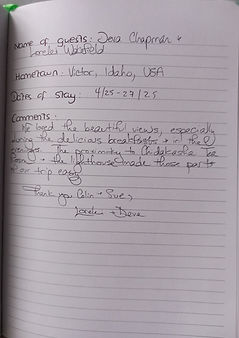 Name of guests: Deva Chapman +
Lorelei
Hometown: Victor, Idaho, USA
Dates of stay: 4/25-27/25
Comments:
We loved the beautiful views, especially
during the delicious breakfasts + in the
evenings. The proximity to Chidakasha Tea
Farm + the lighthouse made those parts
of our trip easy
Thank you Colin + Sue,
Lorelei + Deva